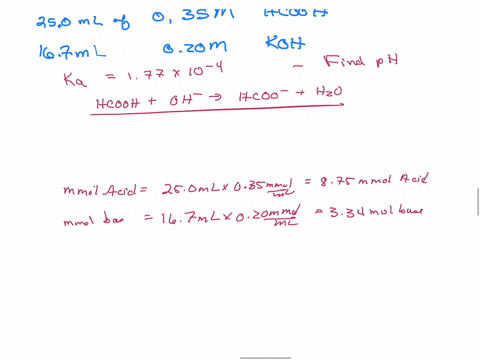 25.0 mL of 0,35M HCOOH
16.7mL 0.20M KOH
Ka = 1.77 × 10⁻⁴ ~ Find pH
HCOOH + OH⁻ → HCOO⁻ + H₂O
mmol Acid = 25.0mL × 0.35 mmol/mL = 8.75 mmol Acid
mmol base = 16.7mL × 0.20 mmol/mL = 3.34 mol base